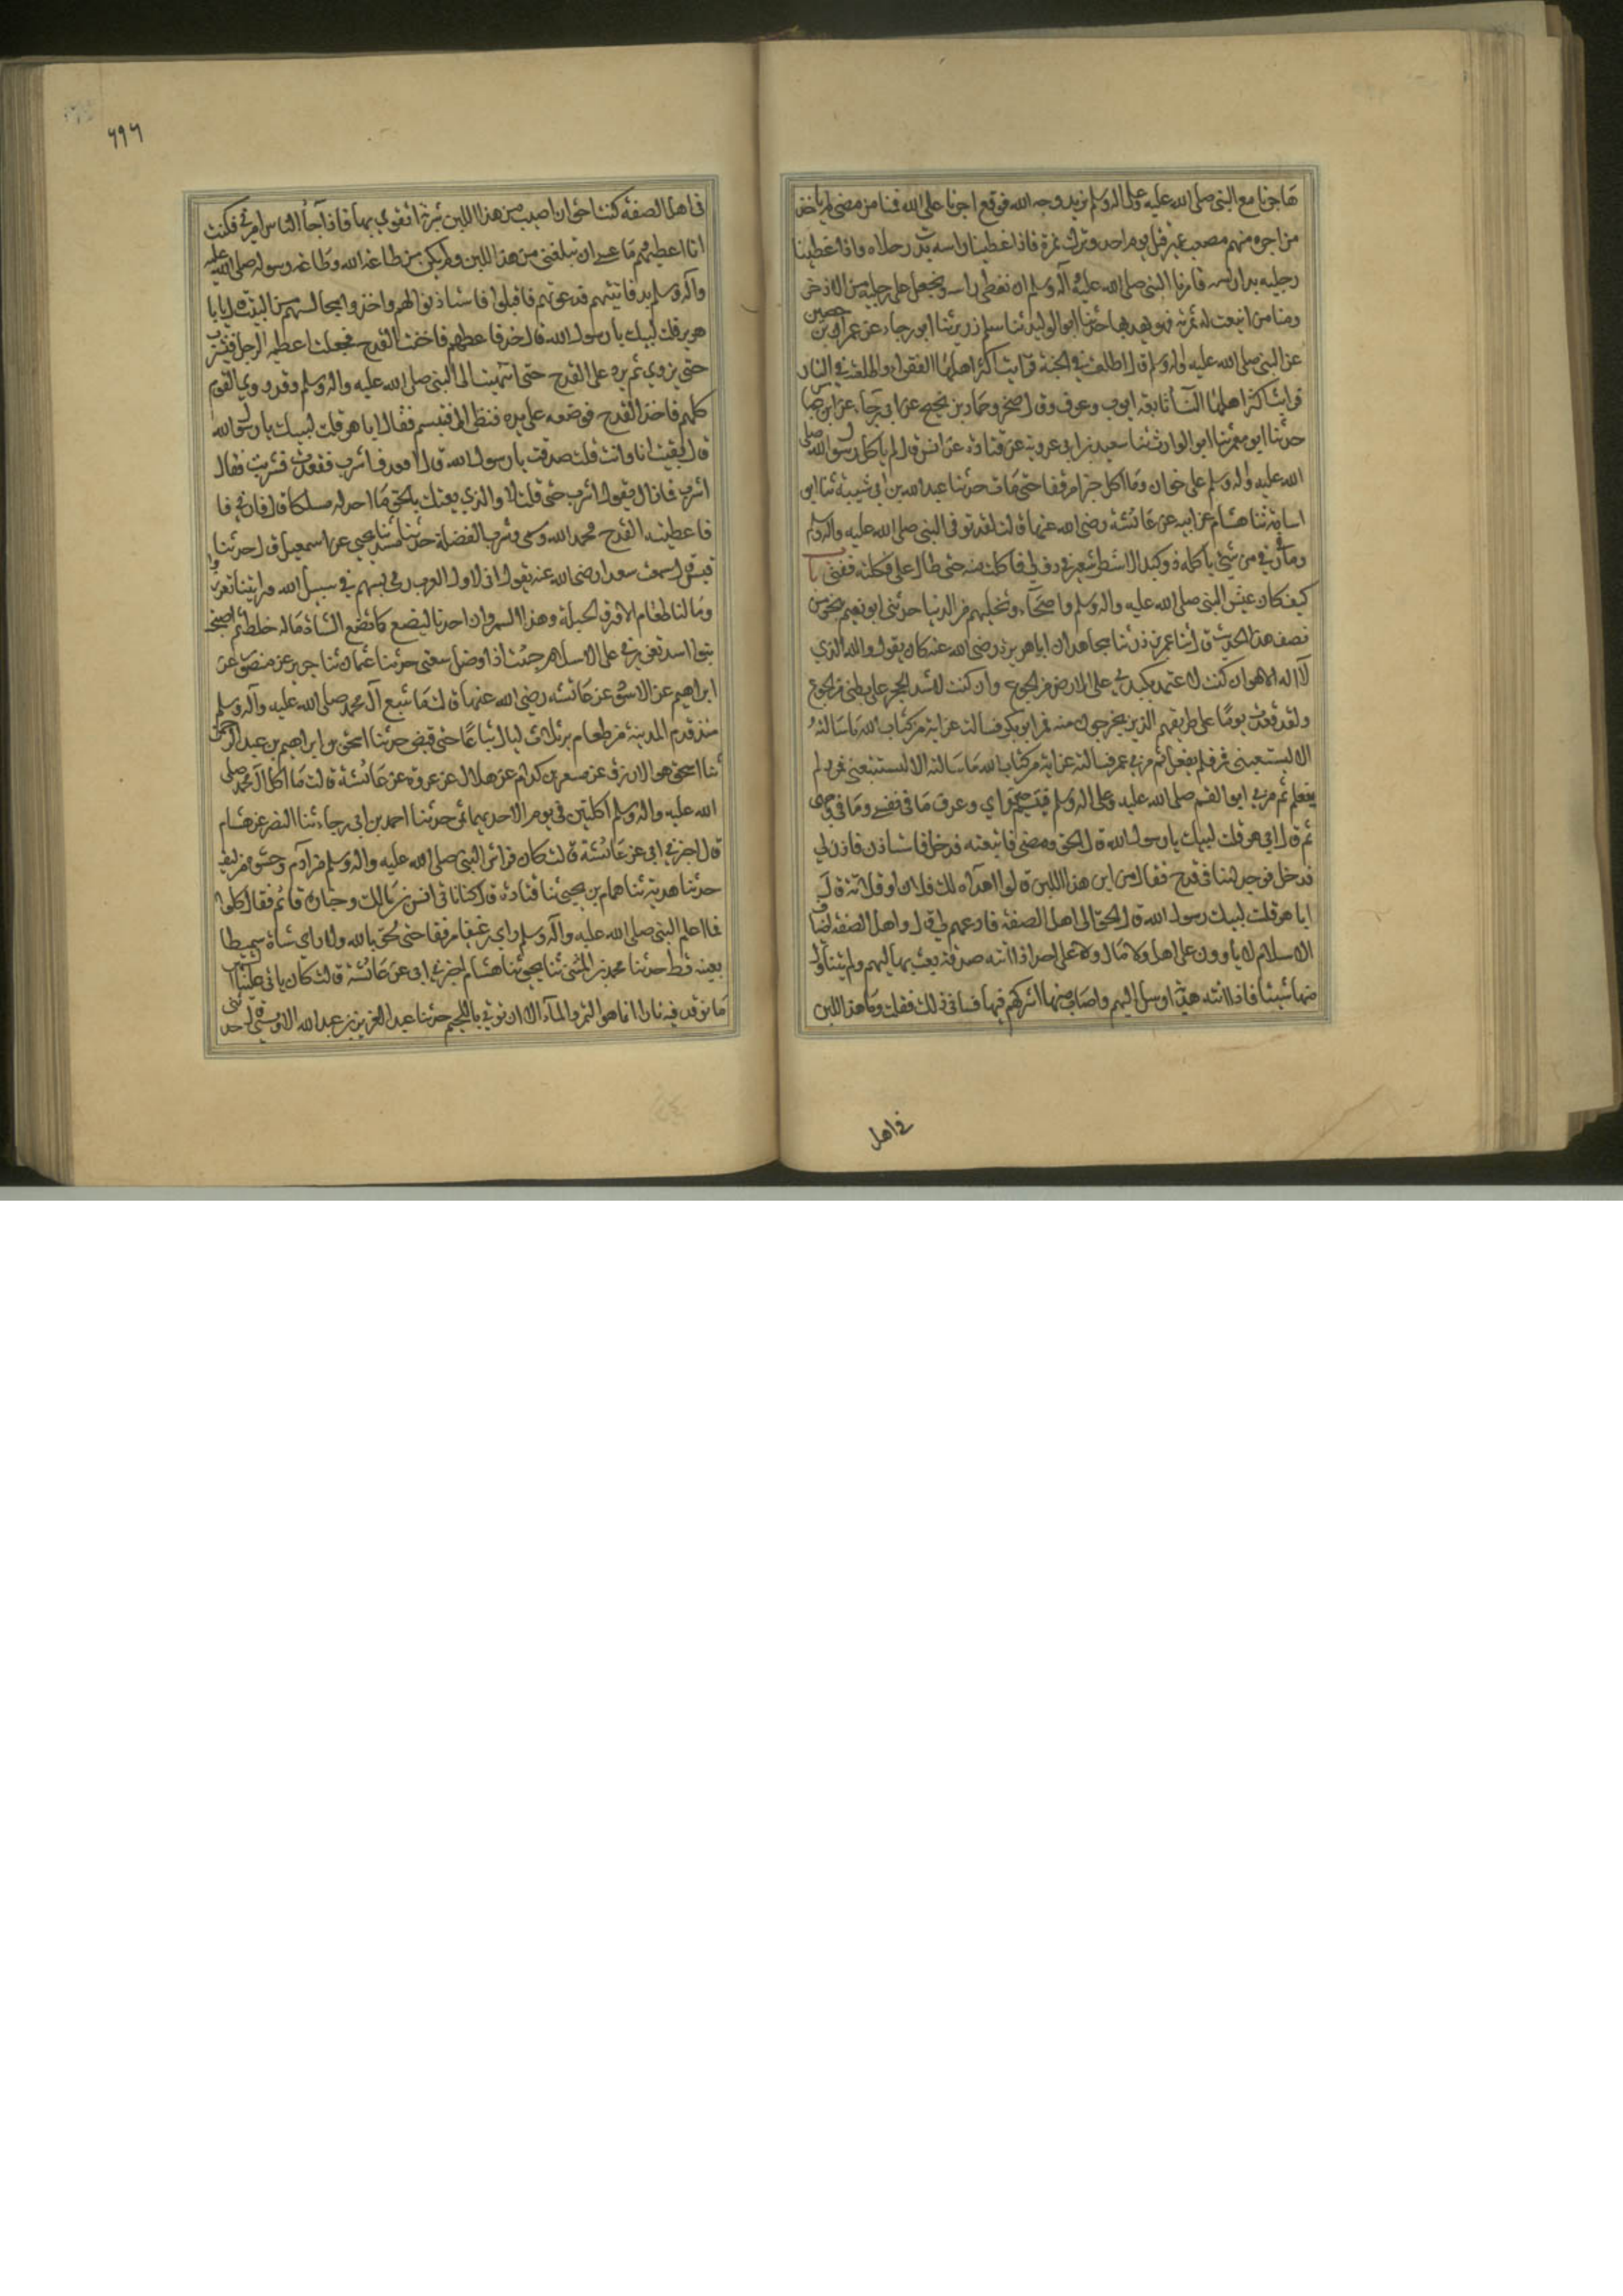 هاجرنا مع النبي صلى الله عليه وعلى اله وسلم نريد وجه الله فوقع اجرنا على الله فمنا من مضى لم ياخذ
من اجره منهم مصعب بن عمير قتل يوم احد وترك نمرة فاذا غطينا راسه بدت رجلاه واذا غطينا
رجليه بدا راسه فامرنا النبي صلى الله عليه وآله وسلم ان نغطي راسه ونجعل على رجليه من الاذخر
ومنا من اينعت له ثمرته فهو يهدبها حدثنا ابو الوليد ثنا سلم بن زرير ثنا ابو رجاء عن عمران بن حصين
عن النبي صلى الله عليه واله وسلم قال اطلعت في الجنة فرايت اكثر اهلها الفقراء واطلعت في النار
فرايت اكثر اهلها النسآ تابعه ايوب وعوف وقال صخر وحماد بن نجيح عن ابي رجاء عن ابن عباس
حدثنا ابو معمر ثنا ابو الوارث ثنا سعيد بن ابي عروبة عن قتادة عن انس قال لم ياكل رسول الله صلى
الله عليه واله وسلم على خوان وما اكل خبزا مرققا حتى مات حدثنا عبد الله بن ابي شيبة ثنا ابو
اسامة ثنا هشام عن ابيه عن عائشة رضى الله عنها قالت لقد توفى النبي صلى الله عليه واله وسلم
وما في رفي من شيئ ياكله ذو كبد الا شطر شعير في رف لي فاكلت منه حتى طال علي فكلته ففني با
كيف كان عيش النبي صلى الله عليه واله وسلم واصحابه وتخليهم من الدنيا حدثني ابو نعيم بنحو من
نصف هذا الحديث قال ثنا عمر بن ذر ثنا مجاهد ان ابا هريرة رضى الله عنه كان يقول والله الذي
لا اله الا هو ان كنت لاعتمد بكبدي على الارض من الجوع وان كنت لاشد الحجر على بطني من الجوع
ولقد قعدت يوما على طريقهم الذين يخرجون منه فمر ابو بكر فسالته عن اية من كتاب الله ما سالته
الا ليستتبعني فمر فلم يفعل ثم مر بي عمر فسالته عن اية من كتاب الله ما سالته الا ليستتبعني فمر ولم
يفعل ثم مر بي ابو القسم صلى الله عليه وعلى اله وسلم فتبسم حين رآني وعرف ما في نفسي وما في وجهي
ثم قال ابا هر قلت لبيك يا رسول الله قال الحق ومضى فاتبعته فدخل فاستاذن فاذن لي
فدخل فوجد لبنا في قدح فقال من اين هذا اللبن قالوا اهداه لك فلان او فلانة قال
ابا هر قلت لبيك رسول الله قال الحق الى اهل الصفة فادعهم لي قال واهل الصفة اضياف
الاسلام لا ياوون على اهل ولا مال ولا على احد اذا اتته صدقة بعث بها اليهم ولم يتناول
منها شيئا فاذا اتته هدية ارسل اليهم واصاب منها واشركهم فيها فساءني ذلك فقلت وما هذا اللبن
في اهل
٦٩٦
في اهل الصفة كنت احق ان اصيب من هذا اللبن شربة اتقوى بها فاذا جآء الناس امرني فكنت
انا اعطيهم وما عسى ان يبلغني من هذا اللبن ولم يكن من طاعة الله وطاعة رسوله صلى الله عليه
وآله وسلم بد فاتيتهم فدعوتهم فاقبلوا فاستاذنوا فاذن لهم واخذوا مجالسهم من البيت قال يا ابا
هر قلت لبيك يا رسول الله قال خذ فاعطهم فاخذت القدح فجعلت اعطيه الرجل فيشرب
حتى يروي ثم يرد علي القدح حتى انتهيت الى النبي صلى الله عليه واله وسلم وقد روي القوم
كلهم فاخذ القدح فوضعه على يده فنظر الي فتبسم فقال ابا هر قلت لبيك يا رسول الله
قال بقيت انا وانت قلت صدقت يا رسول الله قال اقعد فاشرب فقعدت فشربت فقال
اشرب فما زال يقول اشرب حتى قلت لا والذي بعثك بالحق ما اجد له مسلكا قال فارني
فاعطيته القدح فحمد الله وسمى وشرب الفضلة حدثنا مسدد ثنا يحيى عن اسمعيل قال حدثنا
قيس قال سمعت سعدا رضى الله عنه يقول اني لاول العرب رمى بسهم في سبيل الله ورايتنا نغزو
وما لنا طعام الا ورق الحبلة وهذا السمر وان احدنا ليضع كما تضع الشاة ماله خلط ثم اصبحت
بنوا اسد تعزرني على الاسلام خبت اذا وضل سعيي حدثنا عثمان ثنا جرير عن منصور عن
ابراهيم عن الاسود عن عائشة رضى الله عنها قالت ما شبع آل محمد صلى الله عليه وآله وسلم
منذ قدم المدينة من طعام بر ثلاث ليال تباعا حتى قبض حدثنا اسحق بن ابراهيم بن عبد الرحمن
ثنا اسحق هو الازرق عن مسعر بن كدام عن هلال عن عروة عن عائشة قالت ما اكل آل محمد صلى
الله عليه واله وسلم اكلتين في يوم الا احديهما تمر حدثنا احمد بن ابي رجاء ثنا النضر عن هشام
قال اخبرني ابي عن عائشة قالت كان فراش النبي صلى الله عليه واله وسلم من آدم وحشوه من ليف
حدثنا هدبة ثنا همام بن يحيى ثنا قتادة قال كنا ناتي انس بن مالك وخبازه قائم فقال كلوا
فما اعلم النبي صلى الله عليه وآله وسلم راى رغيفا مرققا حتى لحق بالله ولا راى شاة سميطا
بعينه قط حدثنا محمد بن المثنى ثنا يحيى ثنا هشام اخبرني ابي عن عائشة قالت كان ياتي علينا الشهر
ما نوقد فيه نارا انما هو التمر والمآء الا ان نوتي باللحيم حدثنا عبد العزيز بن عبد الله الاويسي